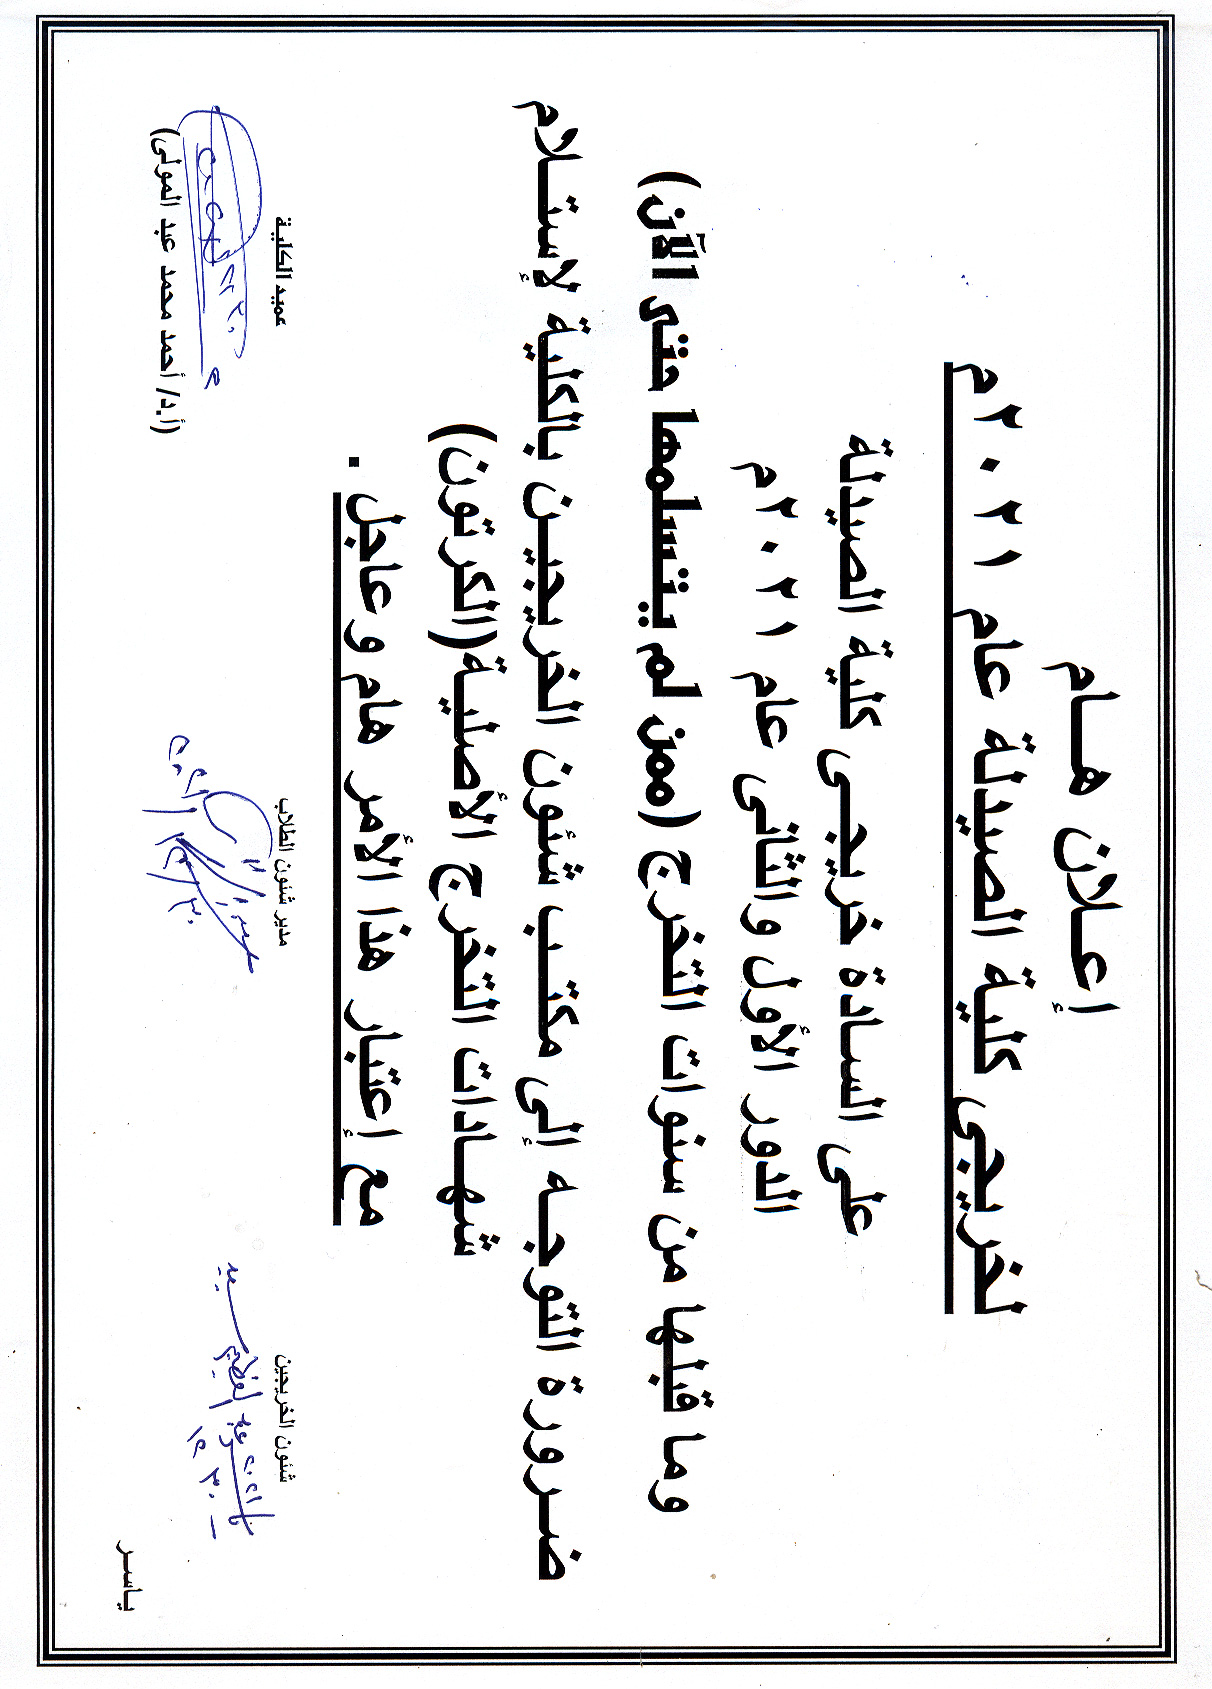 إعلان هام
لخريجى كلية الصيدلة عام ٢٠٢١م
على السادة خريجى كلية الصيدلة
الدور الأول والثانى عام ٢٠٢١م
وما قبلها من سنوات التخرج (ممن لم يتسلمها حتى الآن)
ضرورة التوجه إلى مكتب شئون الخريجين بالكلية لإستلام
شهادات التخرج الأصلية(الكرتون)
مع إعتبار هذا الأمر هام وعاجل .
شئون الخريجين مدير شئون الطلاب عميد الكلية
(أ.د/ أحمد محمد عبد المولى)
ياسر